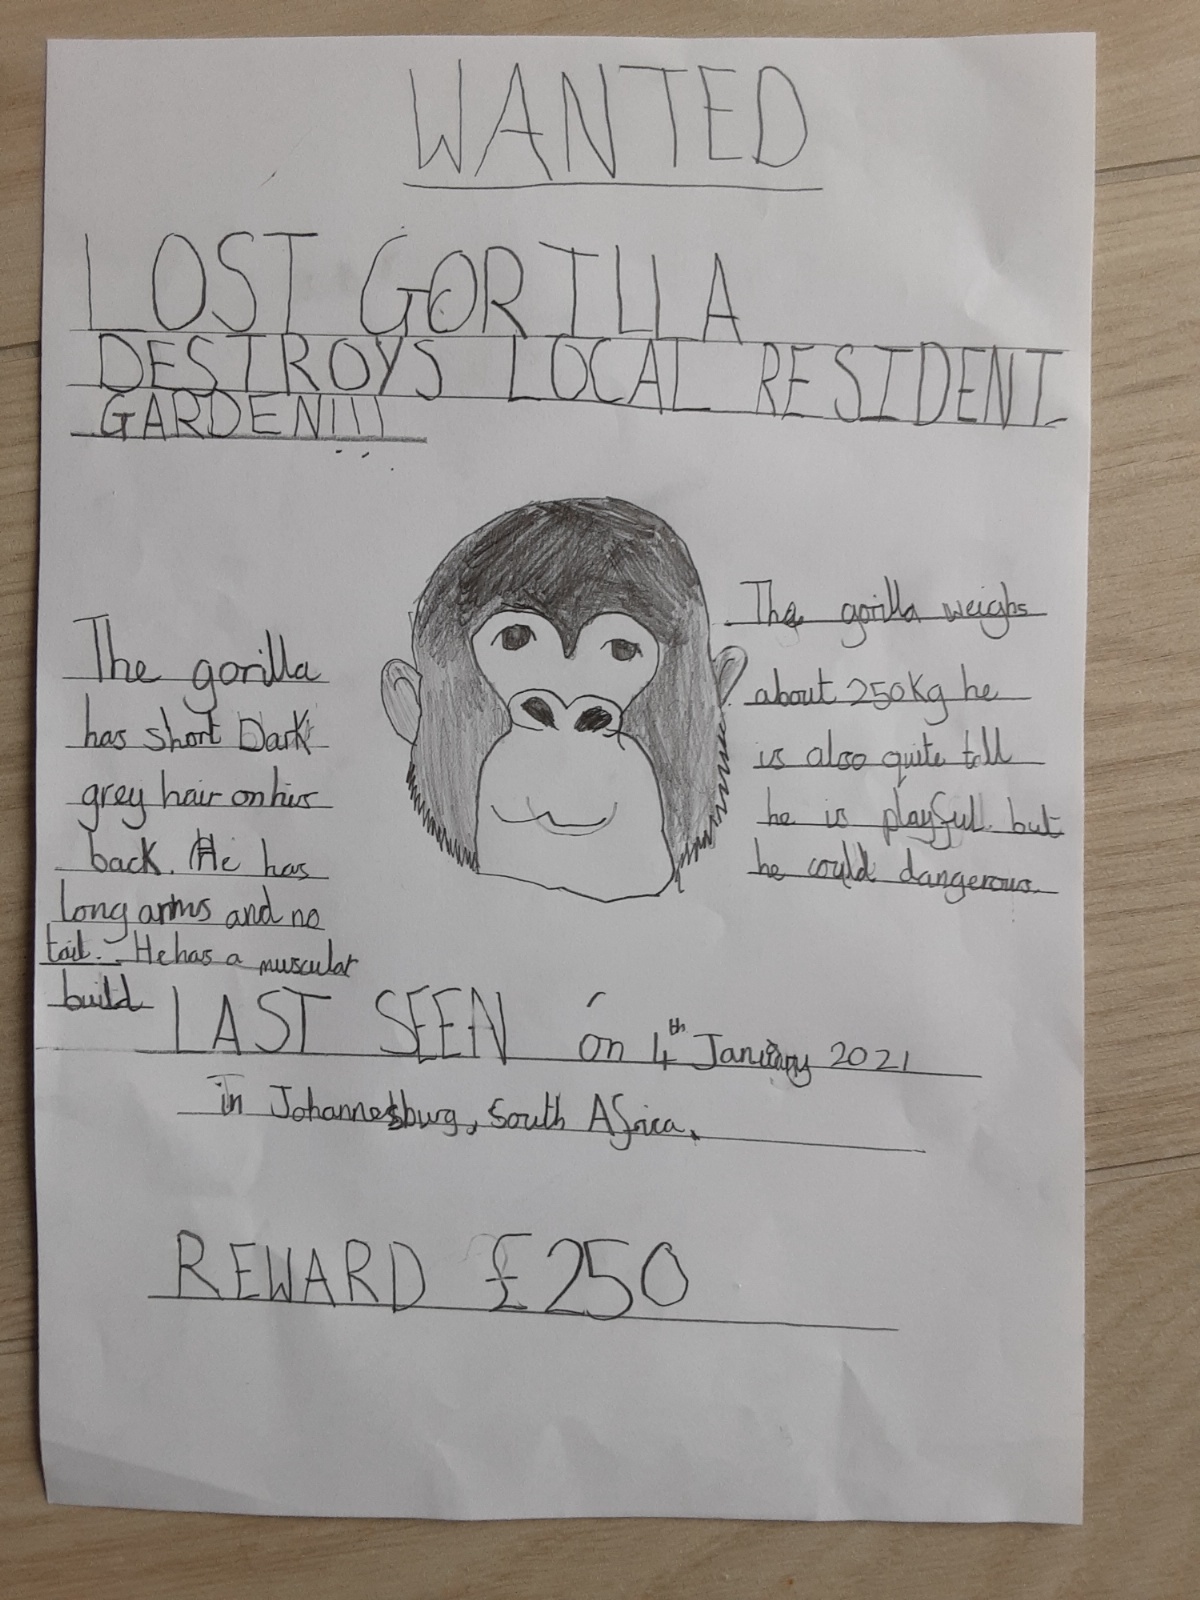 WANTED
LOST GORILLA
DESTROYS LOCAL RESIDENT
GARDEN!!!
The gorilla
has short Dark
grey hair on his
back. He has
long arms and no
tail. He has a muscular
build
The gorilla weighs
about 250Kg he
is also quite tall
he is playful but
he could dangerous.
LAST SEEN on 4th January 2021
in Johannesburg, South Africa.
REWARD £250